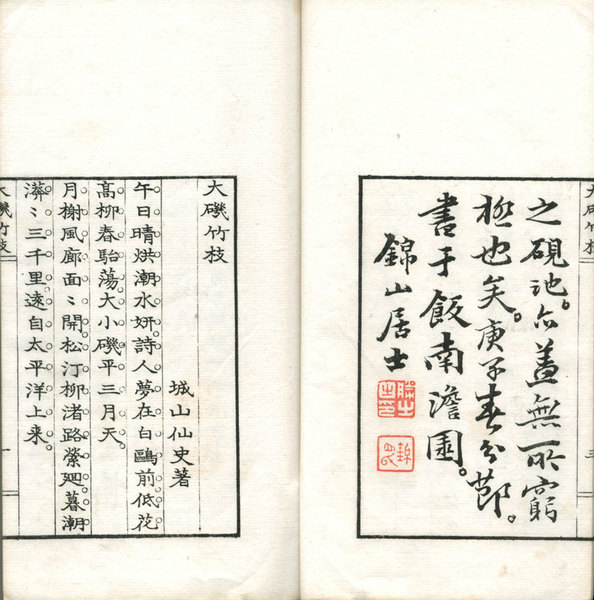 大磯竹枝
三
之硯池。亦蓋無所窮
極也矣。庚子春分節。
書于飯南澹園。
錦山居士
大磯竹枝
城山仙史著
午日晴烘潮水妍詩人夢在白鷗前低花
高柳春駘蕩大小磯平三月天。
月榭風廊面〻開松汀柳渚路縈廻暮潮
漭〻三千里遠自太平洋上来。
大磯竹枝
一